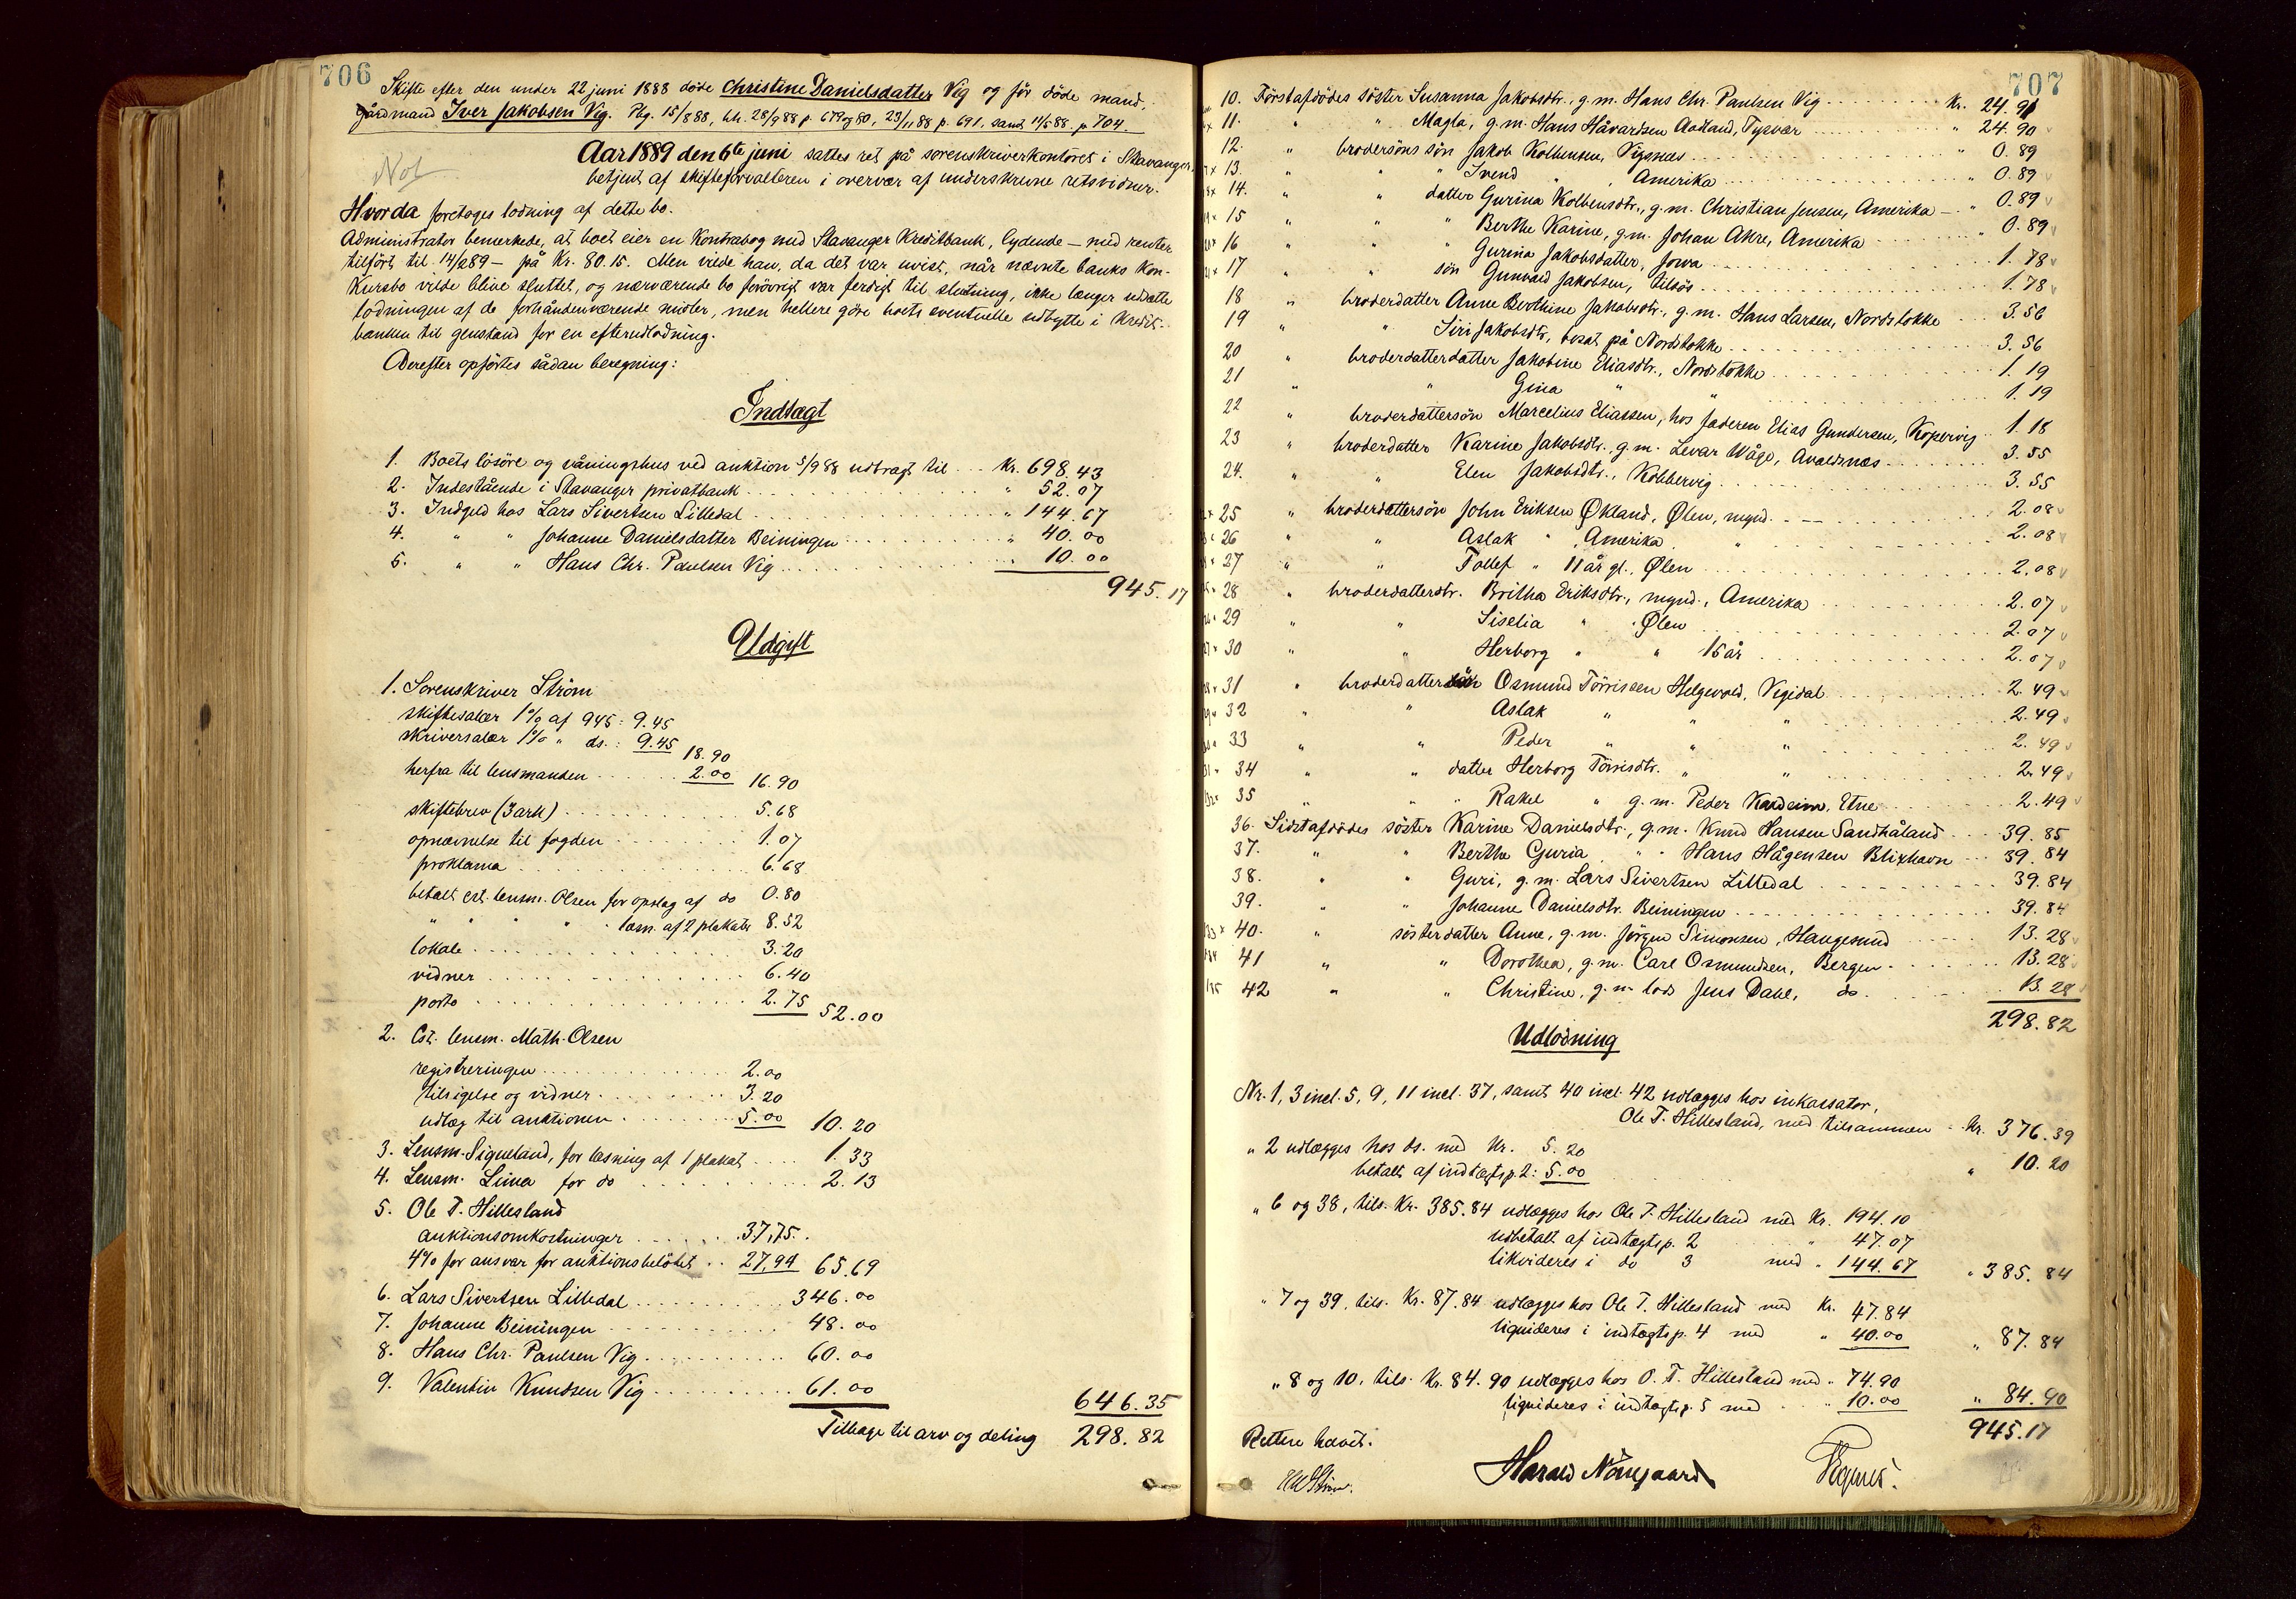 706
Skifte efter den under 22 juni 1888 døde Christine Danielsdatter Vig og før døde mand,
gårdmand Iver Jakobsen Vig. Pbg. 15/8 88, bh. 28/9 88 p. 679 og 80, 23/11 88 p. 691, samt 14/5 88 p. 704.
Not
Aar 1889 den 6te juni sattes ret på sorenskriverkontoret i Stavanger,
betjent af skifteforvalteren i overvær af underskrevne retsvidner.
Hvorda foretoges lodning af dette bo.
Administrator bemerkede, at boet eier en Kontrabog med Stavanger Kreditbank, lydende – med renter
tilført til 14/2 89 – på Kr. 80.15. Men vilde han, da det var uvist, når nævnte banks kon-
kursbo vilde blive sluttet, og nærværende bo forøvrigt var ferdigt til slutning, ikke længer udsætte
lodningen af de forhåndenværende midler, men hellere göre boets eventuelle udbytte i Kredit-
banken til genstand for en efterudlodning.
Derefter opførtes sådan beregning:
Indtægt
1. Boets løsøre og våningshus ved auktion 5/9 88 udbragt til ... Kr. 698.43
2. Indestående i Stavanger privatbank ... " 52.07
3. Indgeld hos Lars Sivertsen Lilledal ... " 144.67
4. " " Johanne Danielsdatter Beiningen ... " 40.00
5. " " Hans Chr. Paulsen Vig ... " 10.00
945.17
Udgift
1. Sorenskriver Ström
skiftesalær 1% af 945: 9.45
skriversalær 1% " ds.: 9.45 18.90
herfra til lensmanden ... 2.00 16.90
skiftebrev (3 ark) ... 5.68
opnævnelse til fogden ... 1.07
proklama ... 6.68
betalt cst. lensm. Olsen for opslag af do 0.80
" " " " læsn. af 2 plakater 8.52
lokale ... 3.20
vidner ... 6.40
porto ... 2.75 52.00
2. Cst. lensm. Math. Olsen
registreringen ... 2.00
tilsigelse og vidner ... 3.20
udlæg til auktionen ... 5.00 10.20
3. Lensm. Sigueland, for læsning af 1 plakat ... 1.33
4. Lensm. Lima for do ... 2.13
5. Ole T. Hillesland
auktionsomkostninger ... 37,75.
4% for ansvar for auktionsbeløbet .. 27,94 65.69
6. Lars Sivertsen Lilledal ... 346.00
7. Johanne Beiningen ... 48.00
8. Hans Chr. Paulsen Vig ... 60.00
9. Valentin Knudsen Vig ... 61.00
646.35
Tilbage til arv og deling 298.82
707
10. Førstafdødes söster Susanna Jakobsdtr., g.m. Hans Chr. Paulsen Vig ... Kr. 24.91
11. " " Magla, g.m. Hans Håvardsen Aadland, Tysvær ... " 24.90
12. " brodersöns sön Jakob Kolbensen, Vigsnæs ... " 0.89
13. " " " Svend " , Amerika ... " 0.89
14. " " datter Gurina Kolbensdtr., g.m. Christian Jensen, Amerika – " 0.89
15 " " " Berthe Karine, g.m. Johan Akre, Amerika ... " 0.89
16 " " Gurina Jakobsdatter, Iowa ... 1.78
17 " " sön Gunvald Jakobsen, tilsös ... 1.78
18 " broderdatter Anne Berthine Jakobsdtr., g.m. Hans Larsen, Nordstokke ... 3.56
19 " " Siri Jakobsdtr., bosat på Nordstokke ... 3.56
20 " broderdatterdatter Jakobine Eliasdtr., Nordstokke ... 1.19
21 " " Gina " " ... 1.19
22 " broderdattersön Marcelius Eliassen, hos faderen Elias Gundersen, Kopervig .. 1.18
23 " broderdatter Karine Jakobsdtr., g.m. Levar Våge, Avaldsnæs ... 3.55
24. " " Elen Jakobsdtr., Kobbervig ... 3.55
25 " broderdattersön John Eriksen Økland, Ølen, mynd. ... 2.08
26 " " Aslak " , Amerika " ... 2.08
27 " " Tollef " 11 år gl., Ølen ... 2.08
28 " broderdatterdtr. Britha Eriksdtr., mynd., Amerika ... 2.07
29 " " Siselia " , Ølen ... 2.07
30 " " Herborg " " 15 år ... 2.07
31 " broderdattersön Osmund Törrissen Helgevold, Vigidal ... 2.49
32 " " Aslak " " " ... 2.49
33 " " Peder " " " ... 2.49
34 " " datter Herborg Törrisdtr. " " ... 2.49
35 " " " Rakel " g.m. Peder Kaldeim, Etne ... 2.49
36. Sidstafdödes söster Karine Danielsdtr., g.m. Knud Hansen Sandhåland ... 39.85
37. " " Berthe Guria " " Hans Hågensen Blixhavn ... 39.84
38. " " Guri, g.m. Lars Sivertsen Lilledal ... 39.84
39. " " Johanne Danielsdtr. Beiningen ... 39.84
40. " sösterdatter Anne, g.m. Jörgen Simonsen, Haugesund ... 13.28
41 " " Dorothea, g.m. Carl Osmundsen, Bergen ... 13.28
42 " " Christine, g.m. lods Jens Dahl, do. ... 13.28
298.82
Udlodning
Nr. 1, 3 incl. 5, 9, 11 incl. 37, samt 40 incl. 42 udlægges hos inkassator,
Ole T. Hillesland, med tilsammen .. Kr. 376.39
" 2 udlægges hos ds. med Kr. 5.20
betalt af indtægtsp. 2: 5.00 " 10.20
" 6 og 38, tils. Kr. 385.84 udlægges hos Ole T. Hillesland med Kr. 194.10
udbetalt af indtægtsp. 2 " 47.07
likvideres i do 3 med " 144.67 " 385.84
" 7 og 39, tils. Kr. 87.84 udlægges hos Ole T. Hillesland med Kr. 47.84
liquideres i indtægtsp. 4 med " 40.00 " 87.84
" 8 og 10, tils. Kr. 84.90 udlægges hos O. T. Hillesland med " 74.90
liquideres i indtægtsp. 5 med " 10.00 " 84.90
945.17
Retten hævet.
Harald Nörregaard